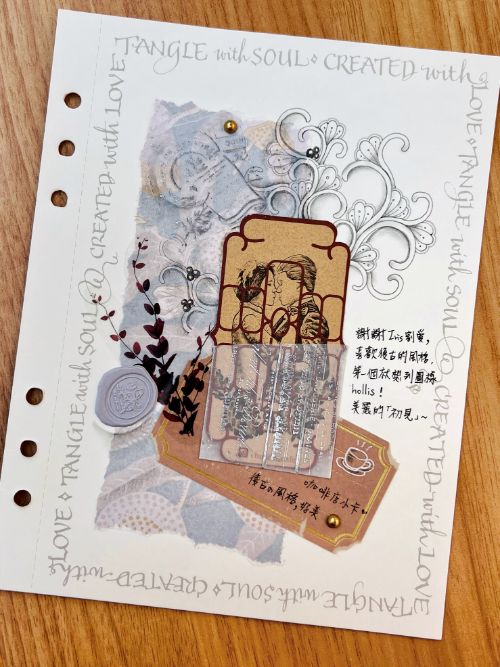 TANGLE with SOUL ⋄ CREATED with
LOVE ⋄ TANGLE with SOUL
CREATED with LOVE
LOVE ⋄ TANGLE with SOUL
CREATED with LOVE
LOVE ⋄ TANGLE with SOUL ⋄ CREATED with LOVE
謝謝 Iris 割愛,
喜歡復古的風格,
第一個故
hollis!
美麗的「初見」~
咖啡店小卡
復古の風格,好美